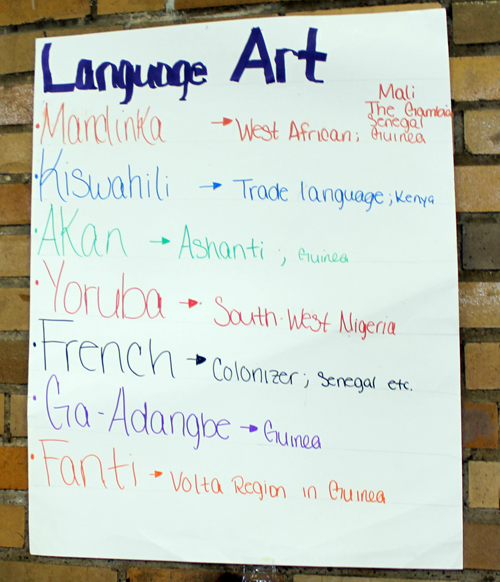 Language Art
• Mandinka → West African; Mali
The Gambia
Senegal
Guinea
• Kiswahili → Trade language; Kenya
• Akan → Ashanti; Guinea
• Yoruba → South-West Nigeria
• French → Colonizer; Senegal etc.
• Ga-Adangbe → Guinea
• Fanti → Volta Region in Guinea